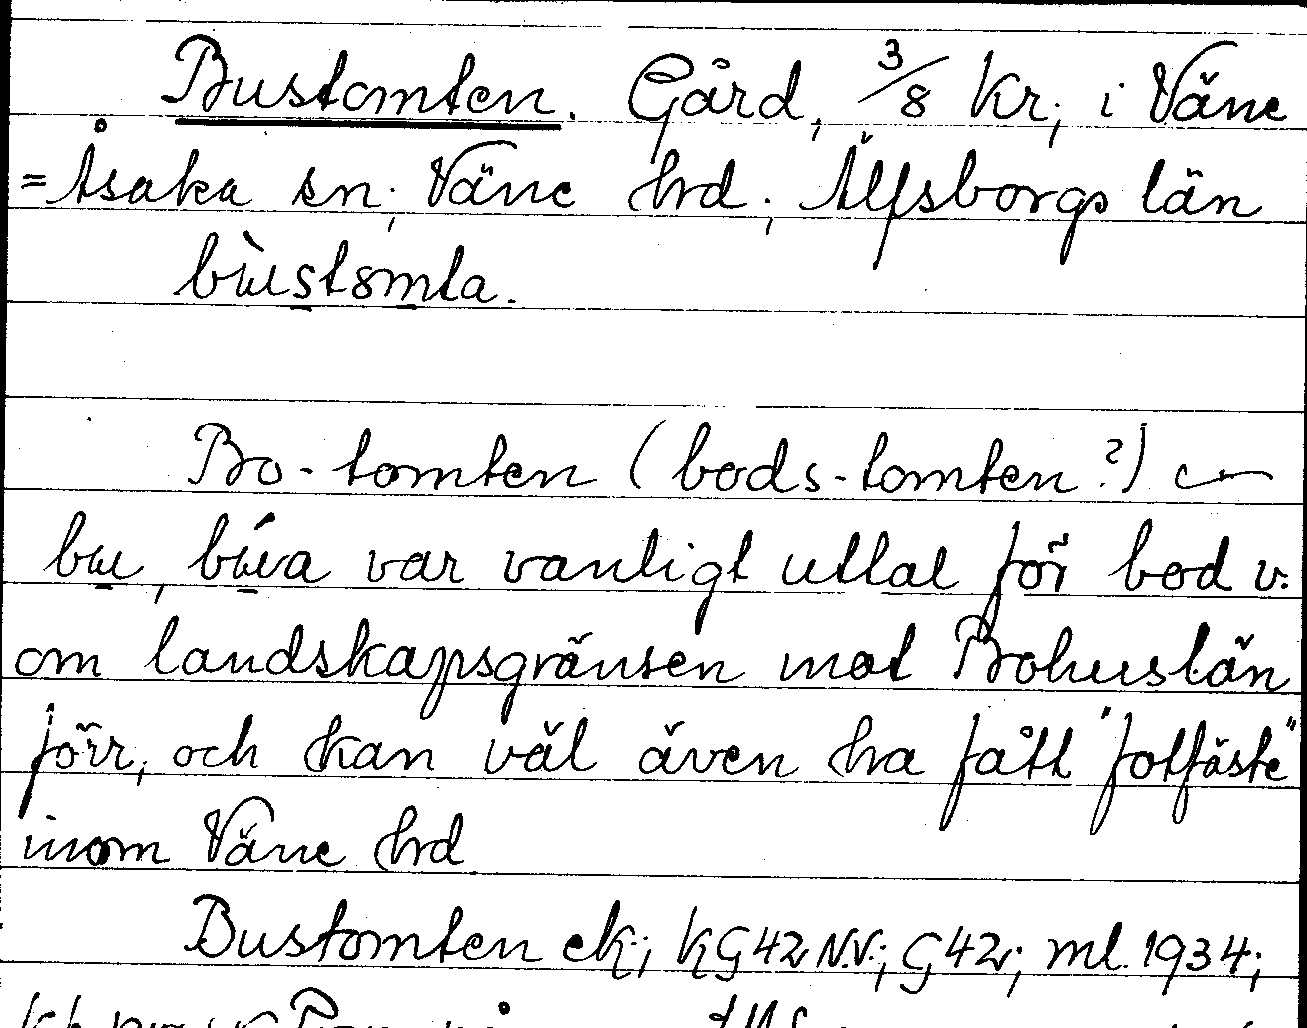 Bustomten. Gård, 3/8 Kr, i Väne
=Åsaka sn, Väne hrd, Älfsborgs län
bùstomta.
Bo-tomten (bods-tomten?)
bu, búva var vanligt uttal för bod v.
om landskapsgränsen mot Bohuslän
förr, och kan väl även ha fått "fotfäste"
inom Väne hrd
Bustomten ek; KG42N.V.; G42; ml. 1934;